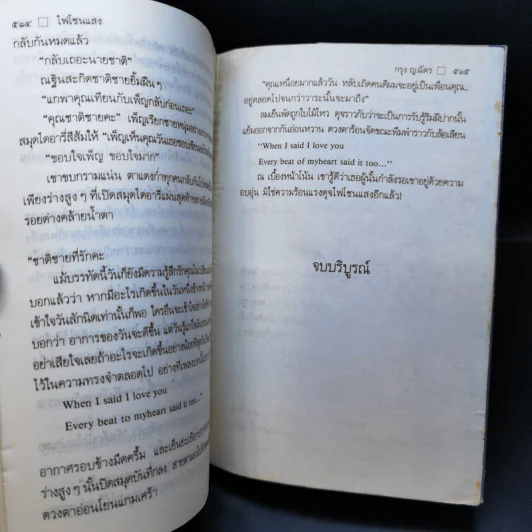 ๕๑๔ □ ไฟโชนแสง
กลับกันหมดแล้ว
"กลับเถอะนายชาติ"
ณฐินสะกิดชาติชายยิ้มฝืนๆ
"แกพาคุณเทียนกับเพ็ญกลับก่อนเถอะ"
"คุณชาติชายคะ" เพ็ญเรียกชายหนุ่มอย่าง
สมุดไดอารี่สีส้มให้ "เพ็ญเห็นคุณวันเธอชอบเขียน
"ขอบใจเพ็ญ ขอบใจมาก"
เขาขบกรามแน่น ตาแดงก่ำทุกคนกลับกัน
เพียงร่างสูงๆ ที่เปิดสมุดไดอารี่แผ่นสุดท้าย
รอยด่างคล้ายน้ำตา
"ชาติชายที่รักคะ
แม้บรรทัดนี้วันก็ยังมีความรู้สึกรักคุณไม่เปลี่ยน
บอกแล้วว่า หากมีอะไรเกิดขึ้นในวันหนึ่งข้างหน้า
เข้าใจวันสักนิดเท่านั้นก็พอ ใครอื่นจะเข้าใจอย่างไร
บอกว่า อาการของวันจะดีขึ้น แต่วันรู้
อย่าเสียใจเลยถ้าอะไรจะเกิดขึ้นอย่างน้อยที่สุด
ไว้ในความทรงจำตลอดไป อย่างที่เพลง
When I said I love you
Every beat to myheart said it too..."
อากาศรอบข้างมืดครึ้ม และเย็นยะเยือก
ร่างสูงๆ นั้นปิดสมุดบันทึกลง สายตา
ดวงตาอ่อนโยนแกมเศร้า
กรุง ญ.ฉัตร □ ๕๑๕
"คุณเหนื่อยมากแล้ววัน หลับเถิดคนดีผมจะอยู่เป็นเพื่อนคุณ..
อยู่ตลอดไปจนกว่าวาระนั้นจะมาถึง"
ลมเย็นพัดถูกใบไม้ไหว ดุจราวกับว่าจะเป็นการรับรู้ริมฝีปากนั้น
แย้มออกจากกันอ่อนหวาน ดวงตาร้อนจัดขณะพึมพำราวกับล้อเลียน
"When I said I love you
Every beat of myheart said it too..."
ณ เบื้องหน้าโน้น เขารู้ดีว่าเธอผู้นั้นกำลังรอเขาอยู่ด้วยความ
อบอุ่น มิใช่ความร้อนแรงดุจไฟโชนแสงอีกแล้ว!
จบบริบูรณ์